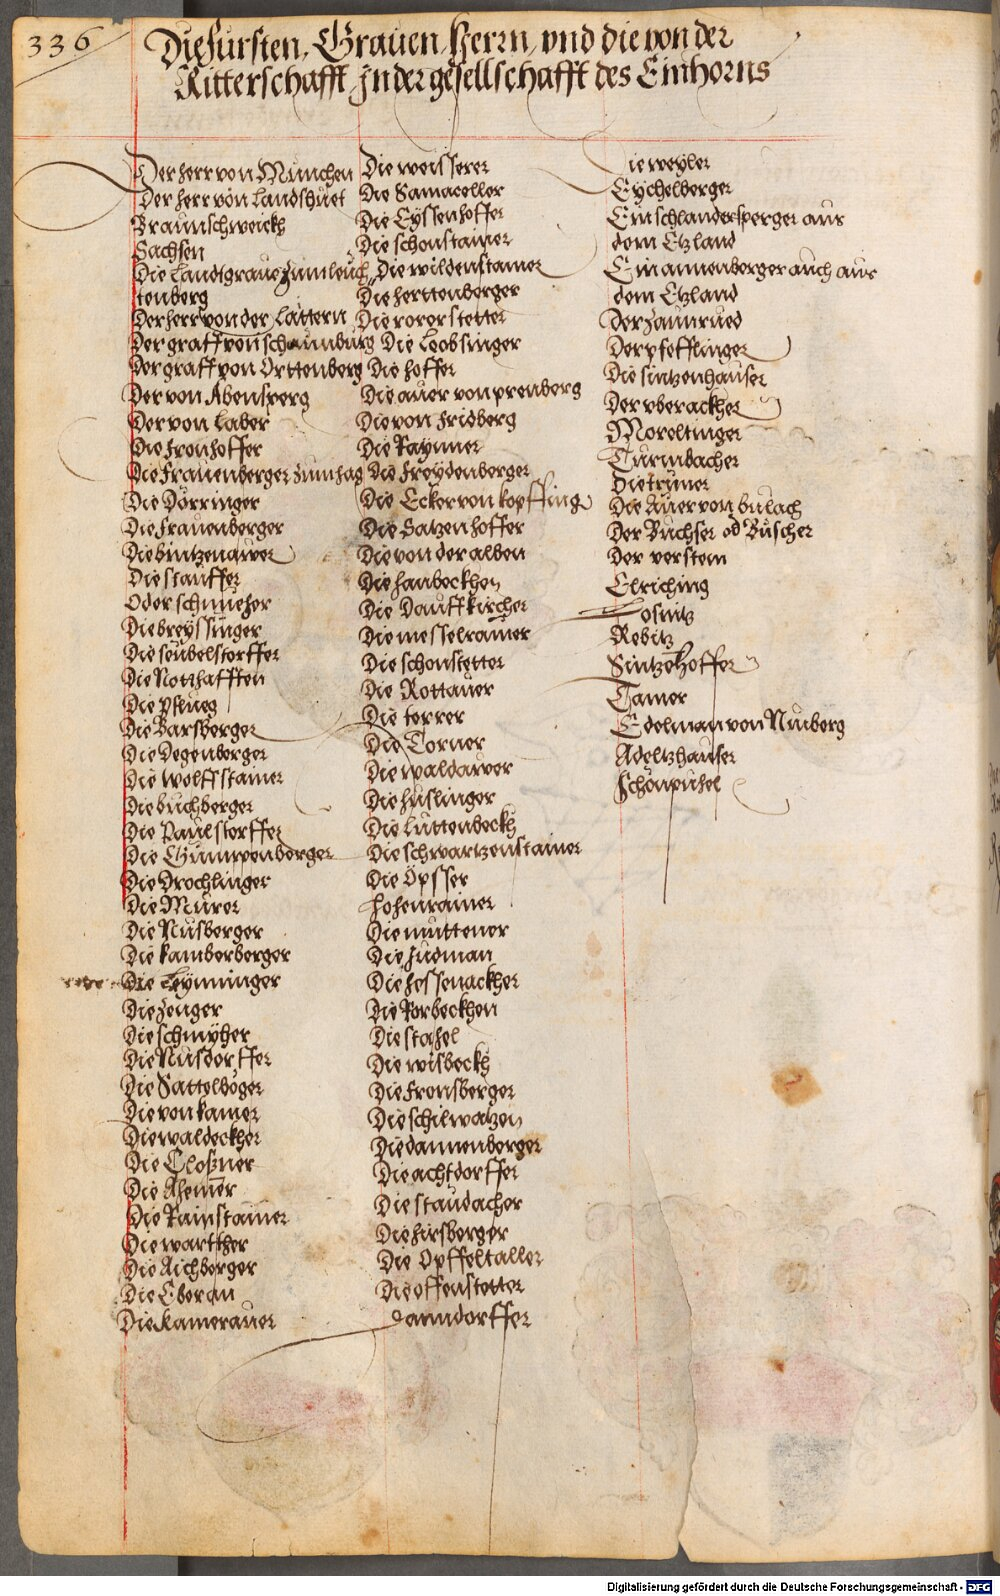 336
Die Fürsten, Grauen, Herrn, vnd die von der
Ritterschafft, In der gesellschafft des Einhorns
Der herr von München
Der herr von Landshuet
Braunschweickh
Sachsen
Die Landtgraue zum leuch„
tenberg
Der herr von der Laittern
Der graff von schaumburg
Der graff von Orttenberg
Der von Abensperg
Der von Laber
Die Fronhoffer
Die Frauenberger zum hag
Die Dörringer
Die Frauenberger
Die stauffer
Oder schmeher
Die breyssinger
Die seubelstorffer
Die Nothafften
Die Pflueg
Die Barsberger
Die Degenberger
Die Wolffstainer
Die buchberger
Die Paulstorffer
Die Gumppenberger
Die Drochlinger
Die Murer
Die Nusberger
Die kamberberger
Die Leyminger
Die Zenger
Die schmyher
Die Nusdorffer
Die Sattelboger
Die von kamer
Die waldeckher
Die Closner
Die Ahemer
Die Rainstainer
Die wartther
Die Aichberger
Die Eberan
Die Kamerauer
Die weisserer
Die Samaceller
Die Eyssenhoffer
Die schonstainer
Die wildenstainer
Die herttenberger
Die rorerstetter
Die Leobsinger
Die hoffer
Die auer von prenberg
Die von Fridberg
Die Raymer
Die Freydenberger
Die Ecker von kopffing
Die Satzenhoffer
Die von der alben
Die hanbeckhen
Die Dauffkircher
Die messelramer
Die schonstetter
Die Rottauer
Die ferrer
Die Torner
Die waldawer
Die huslinger
Die Luttenbeckh
Die schwartzenstainer
Die Öpsser
Hohenrainer
Die muttener
Die Judman
Die hessenackher
Die Porbeckhen
Die stahel
Die wisbeckh
Die Fronsberger
Die schilwatzen
Die dannenberger
Die achtdorffer
Die staudacher
Die hirsberger
Die Opffeltaller
Die offenstetter
Danndorffer
Die weyler
Eychelberger
Ein schlandersperger aus
dem Etzland
Ein annenberger auch aus
dem Etzland
Der Zaunrued
Der pfefflinger
Die sintzenhauser
Der vberackher
Moroltinger
Turmbacher
Die truner
Die Auer von bulach
Der Buchser od Büscher
Der verstein
Elriching
Losnitz
Rebitz
Sintzehoffer
Tamer
Edelman von Nurberg
Adeltzhauser
Schönpuhel
Digitalisierung gefördert durch die Deutsche Forschungsgemeinschaft - DFG